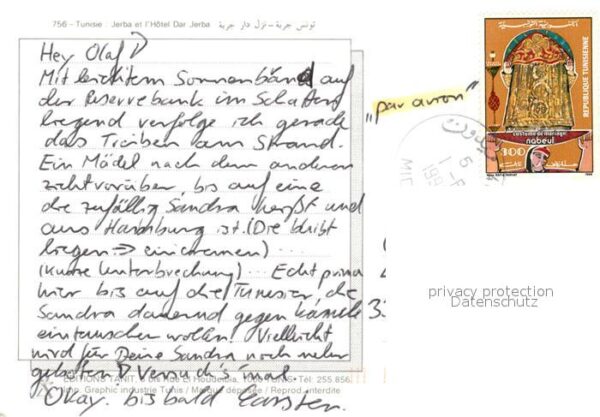 756 - Tunisie : Jerba et l'Hôtel Dar Jerba تونس جربة - نزل دار جربة
Hey Olaf!
Mit leichtem Sonnenbrand auf
der Reservebank im Schatten
liegend verfolge ich gerade
das Treiben am Strand.
Ein Mädel nach dem anderen
zieht vorüber, bis auf eine
die zufällig Sandra heißt und
aus Hamburg ist. (Die bleibt
liegen => eincremen) ...
(Kurze Unterbrechung) ... Echt prima
hier bis auf die Tunesier, die
Sandra dauernd gegen Kamele
eintauschen wollen! Vielleicht
wird für Deine Sandra noch mehr
geboten! Versuch's mal
EDITIONS TANIT, 6 bis Rue El Houdeulia, TUNIS Tél: 255.856
Graphic industrie Tunis / Maquette déposée / Reprod. interdite
Okay. bis bald Carsten.
"par avion"
REPUBLIQUE TUNISIENNE
costume de mariage
nabeul
300
privacy protection
Datenschutz